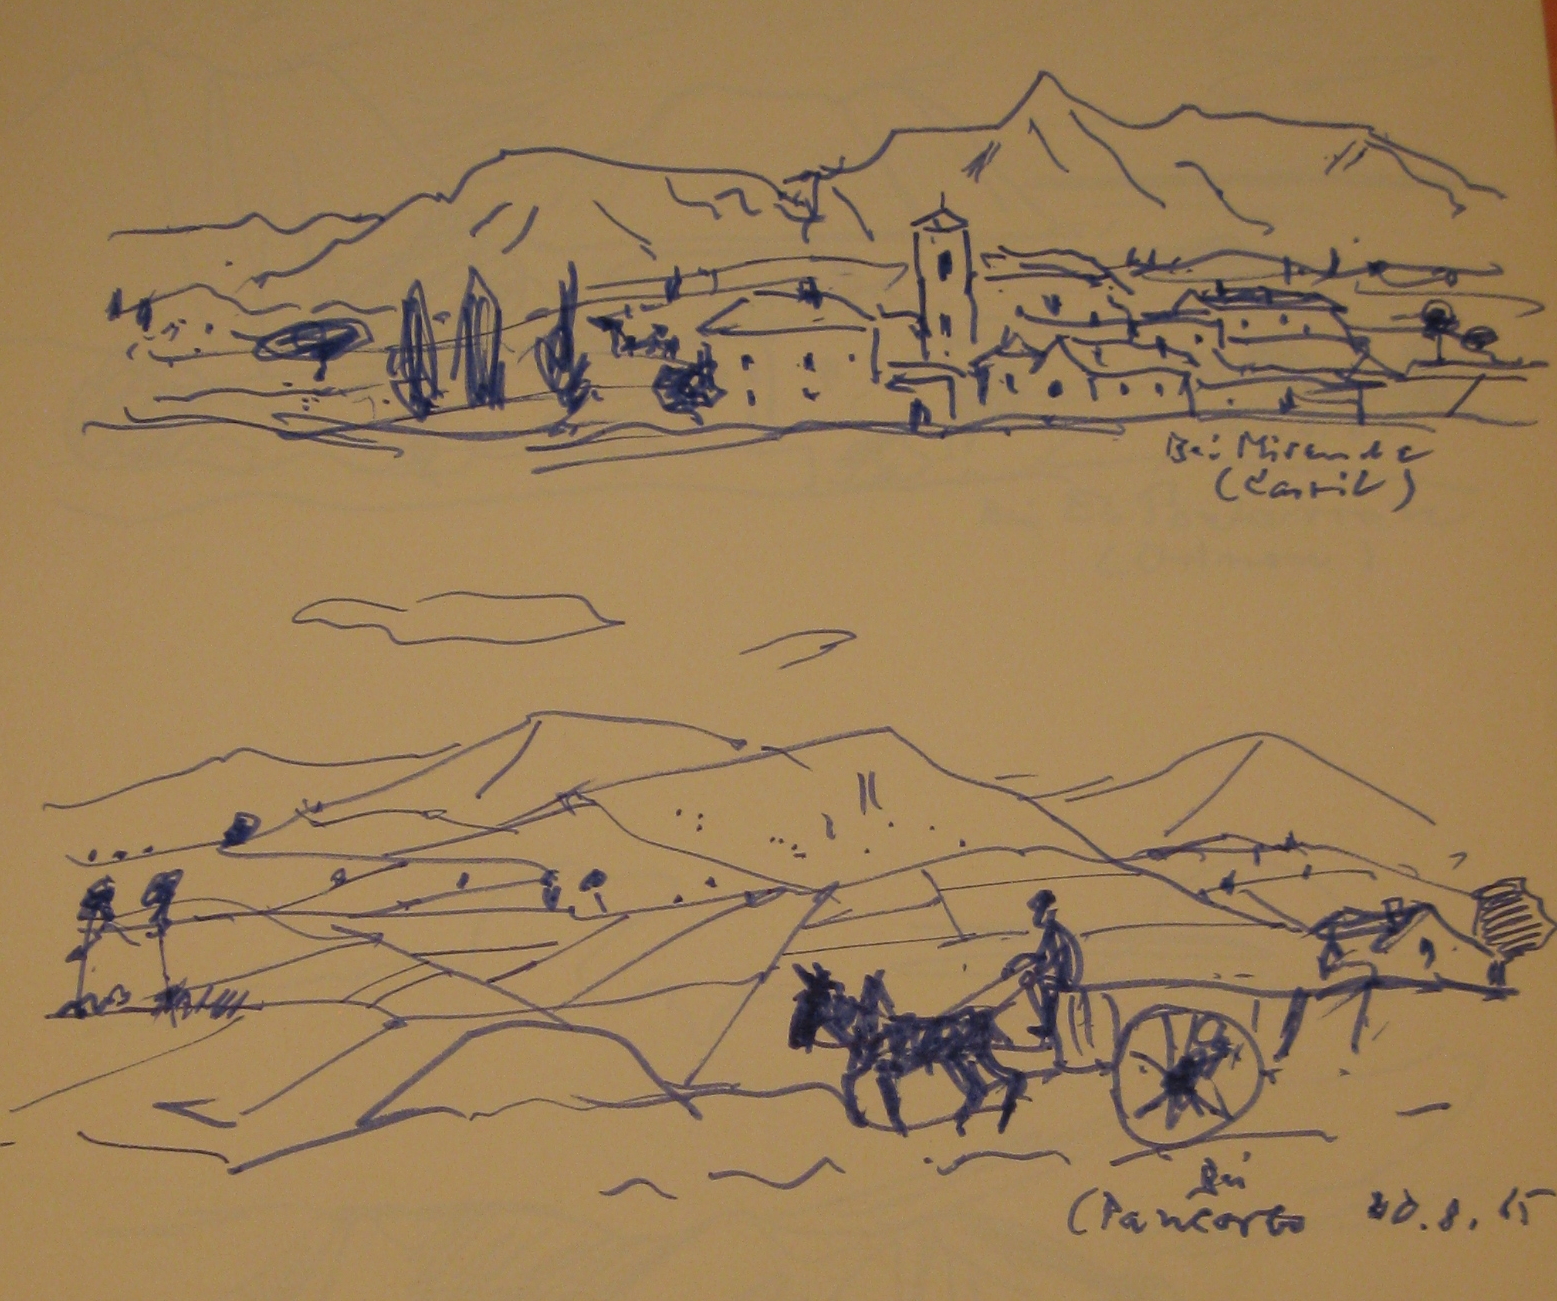 Bei Miranda
(Kastil)
Bei
(Pancorbo 20.8.65